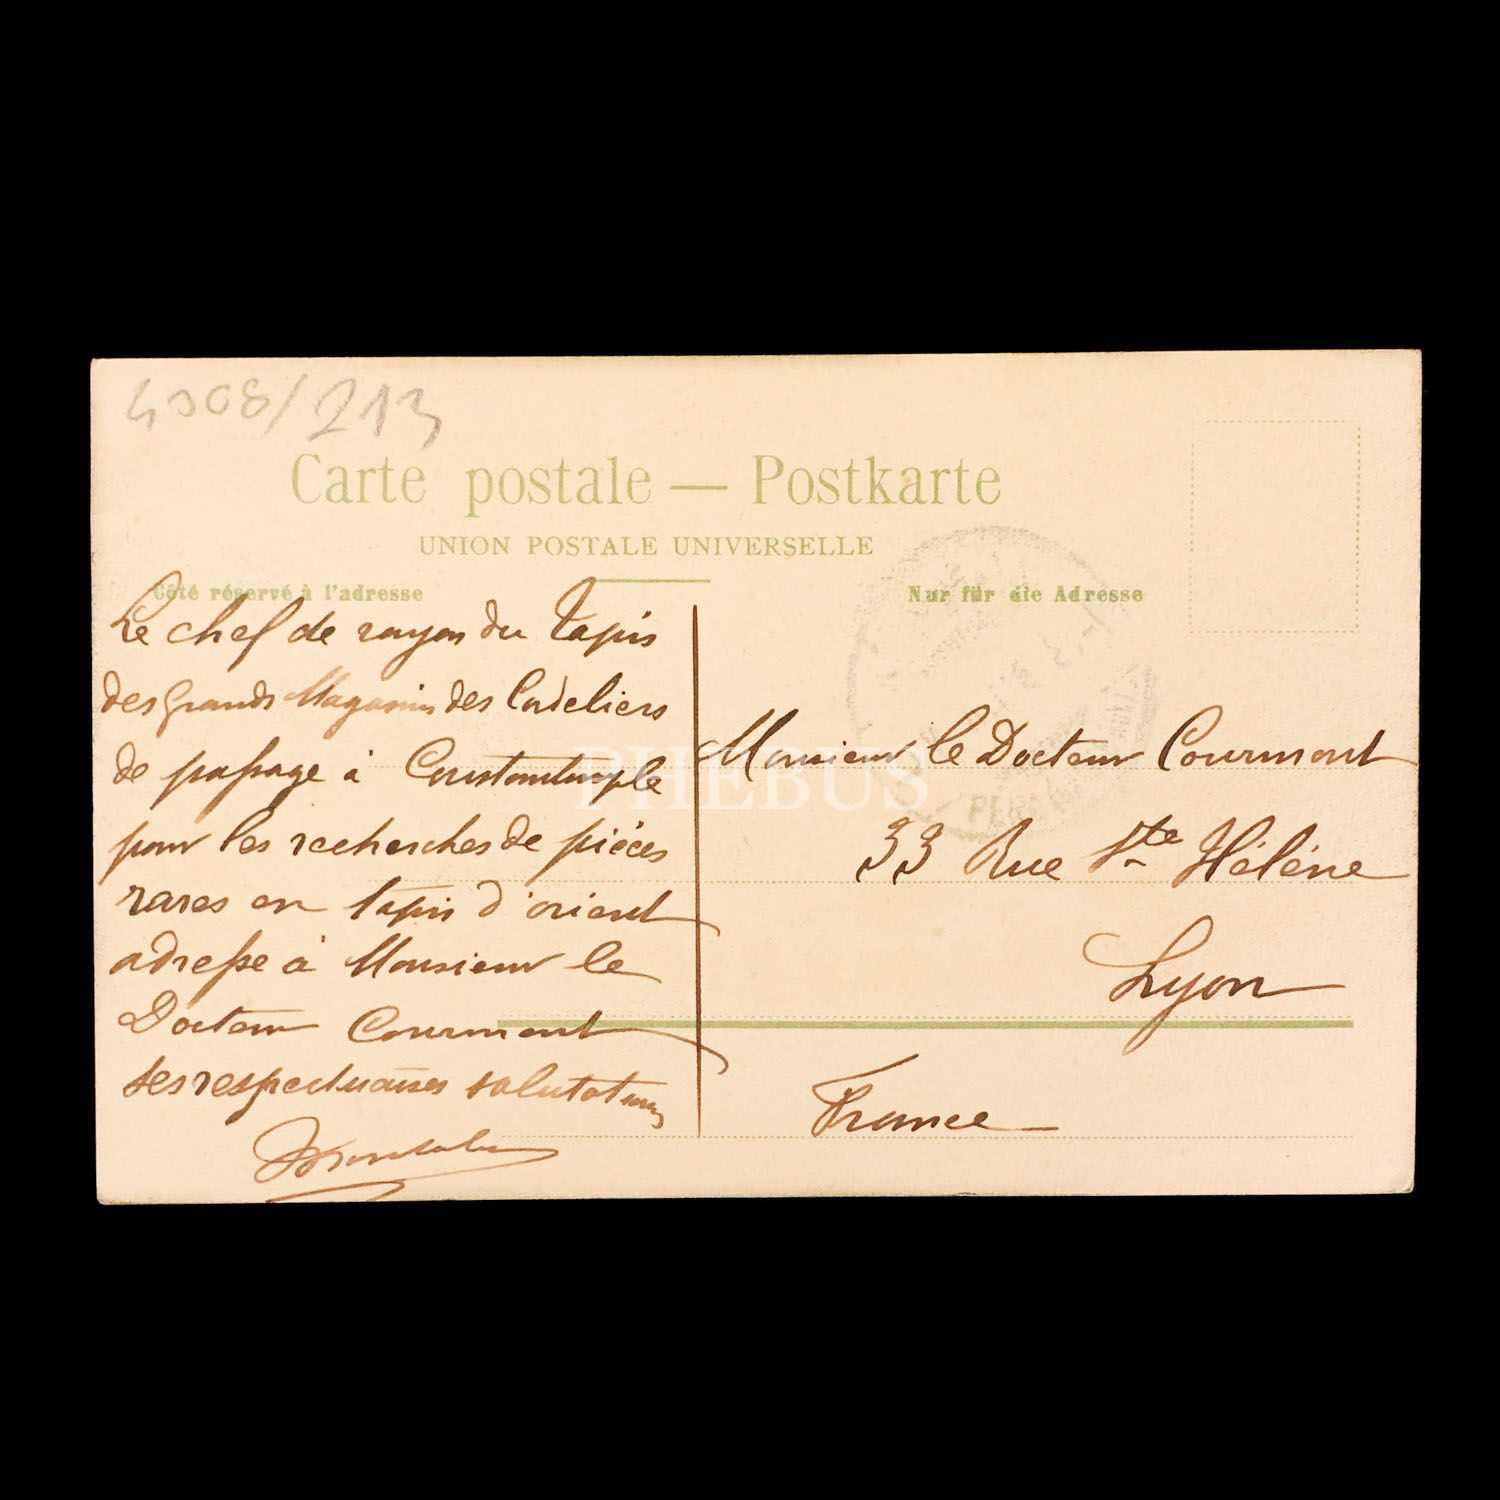 4308/213
Carte postale — Postkarte
UNION POSTALE UNIVERSELLE
Côté réservé à l'adresse
Nur für die Adresse
Le chef de rayon du Tapis
des Grands Magasins des Cordeliers
de passage à Constantinople
pour les recherches de pièces
rares en tapis d'orient
adresse à Monsieur le
Docteur Courmont
ses respectueuses salutations
Monsieur le Docteur Courmont
33 Rue Ste Hélène
Lyon
France
PERA
PHEBUS